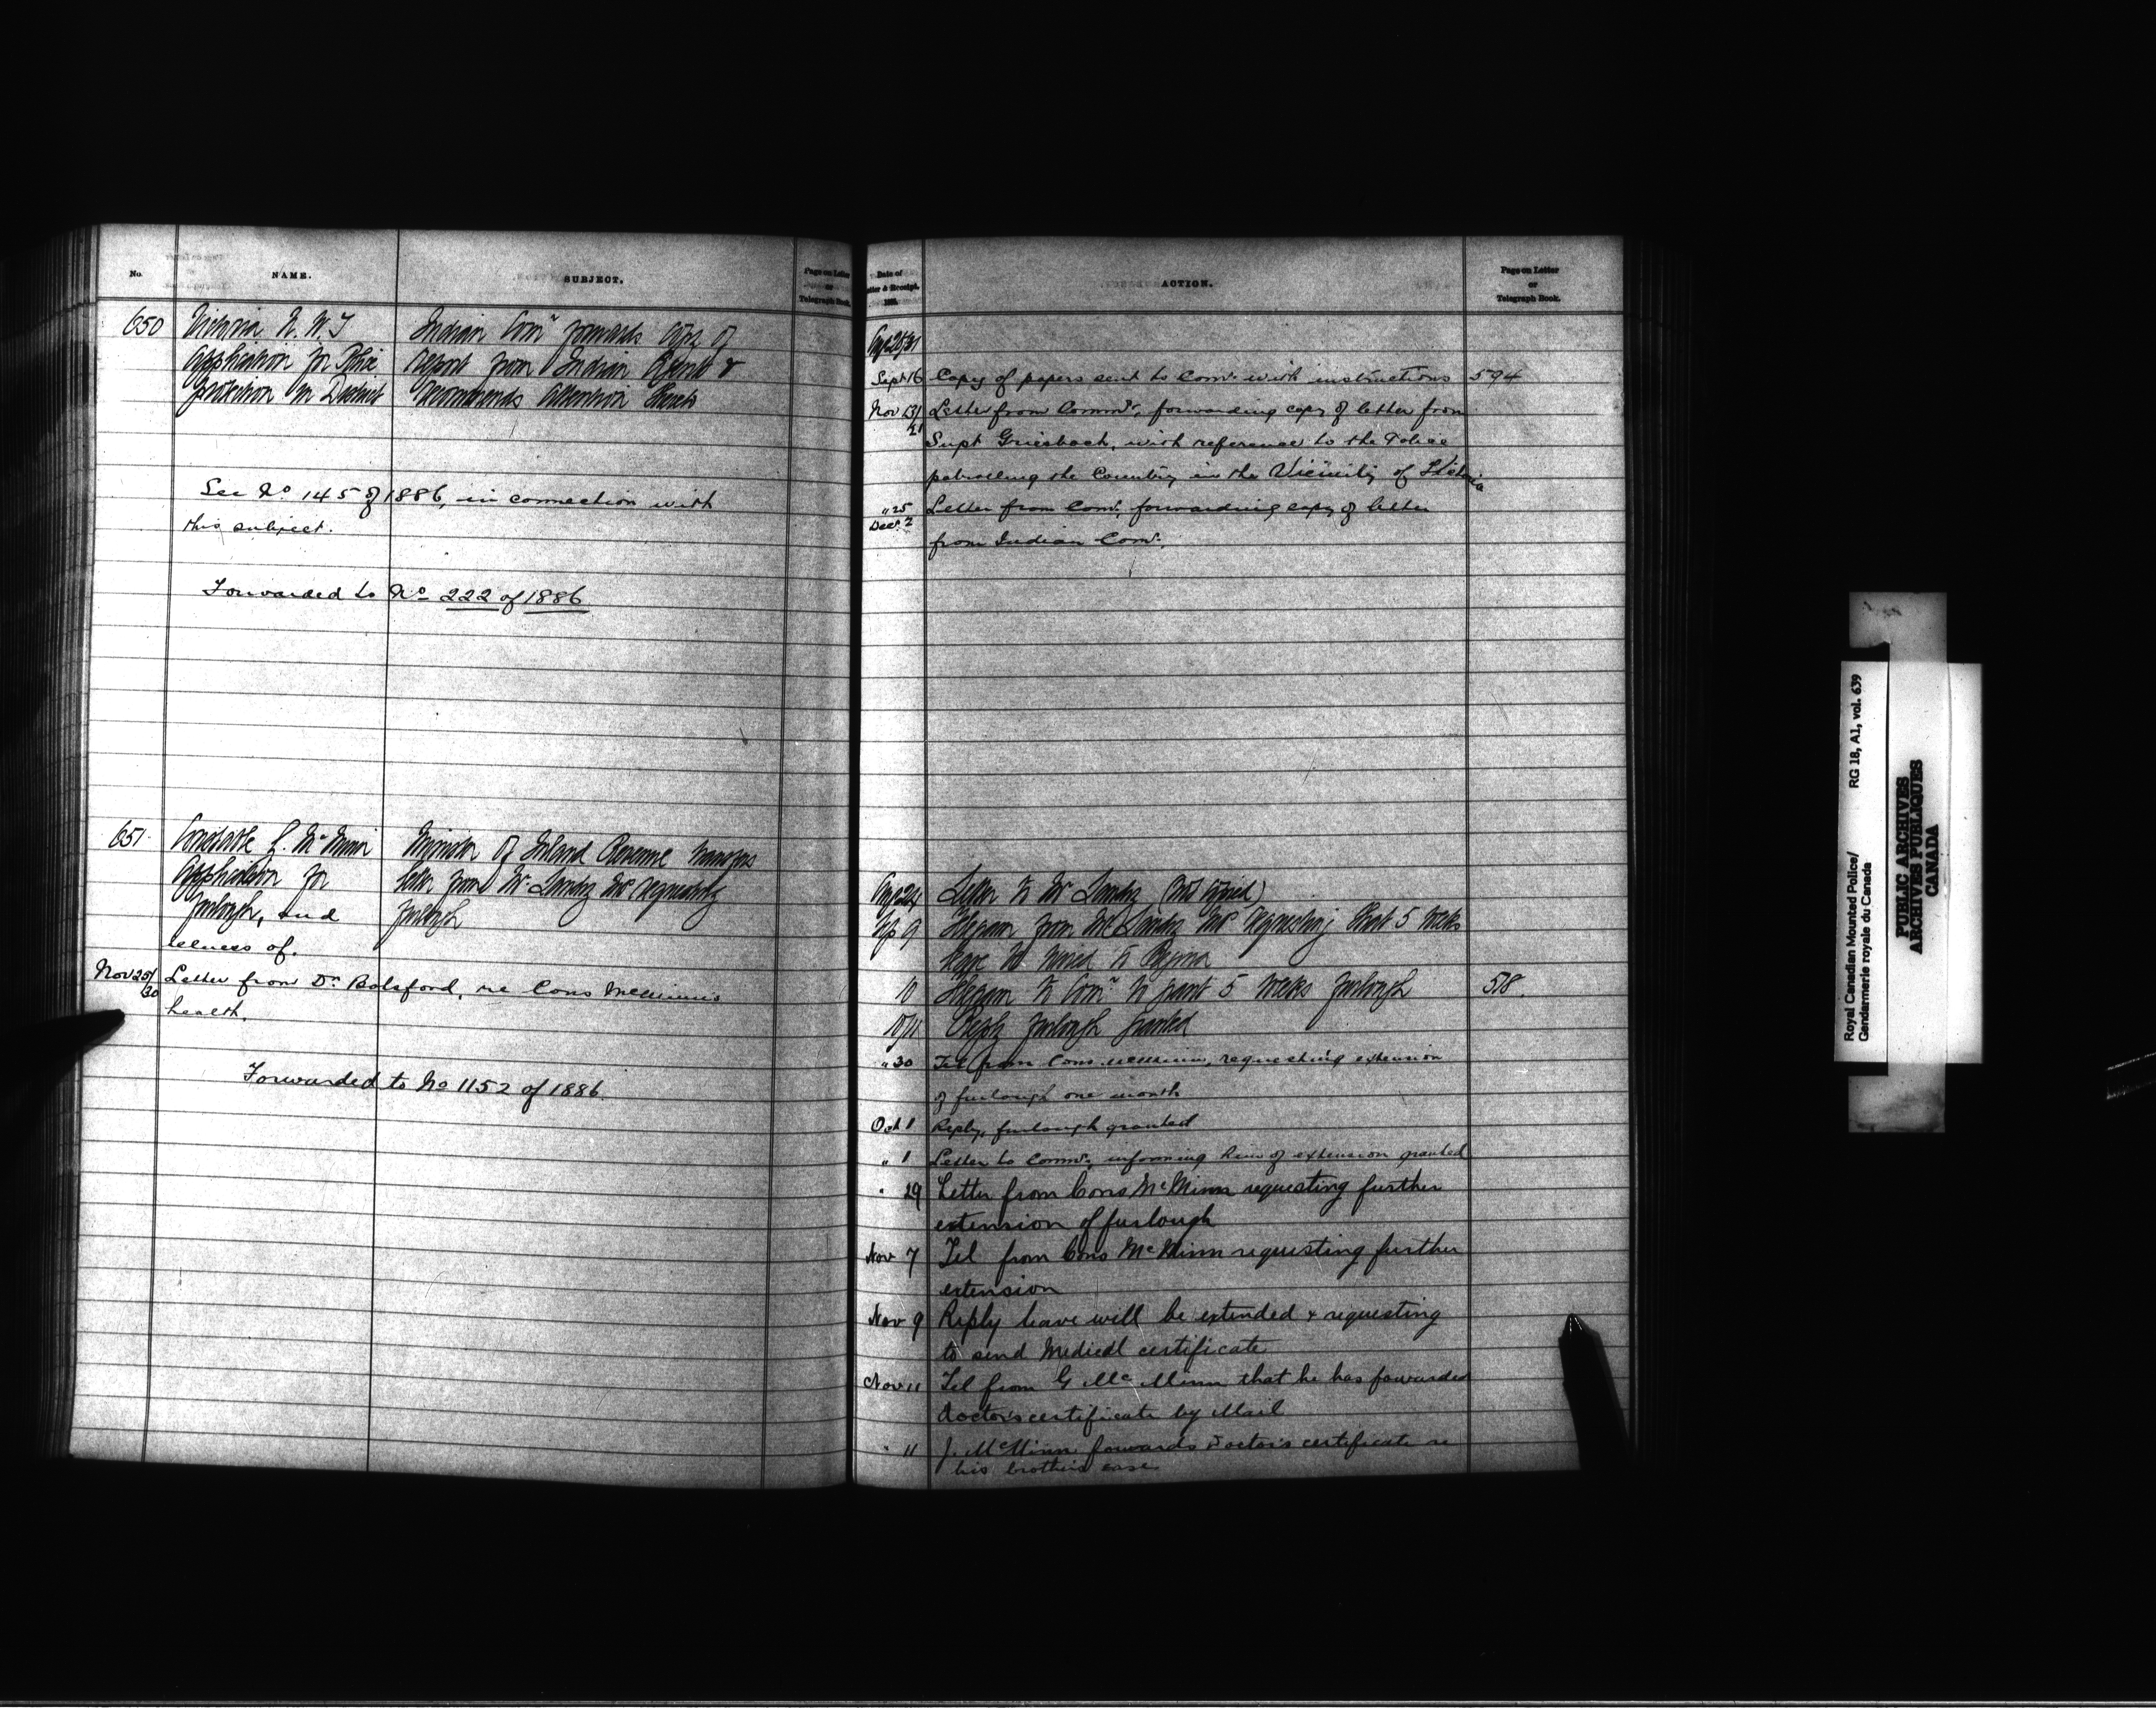 No.
NAME.
SUBJECT.
Page on Letter
or
Telegraph Book.
650
Victoria N. W. T
Application for Police
protection in District
Indian Comr forwards copy of
report from Indian Agent &
recommends attention thereto
See No 145 of 1886, in connection with
this subject.
Forwarded to No 222 of 1886
651.
Constable G. McMinn
Application for
furlough, and
illness of.
Minister of Inland Revenue transfers
letter from Mr. Landry requesting
furlough
Nov 25/30 Letter from Dr. Botsford, re Cons McMinn's
health.
Forwarded to No 1152 of 1886.
Date of
Letter & Receipt.
188
ACTION.
Page on Letter
or
Telegraph Book.
Aug 25/31
Sept 16 Copy of papers sent to Comr. with instructions 594
Nov 13/21 Letter from Commr, forwarding copy of letter from
Supt Griesbach, with reference to the Police
patrolling the Country in the Vicinity of Victoria
" 25 Letter from Comr, forwarding copy of letter
Decr. 2
from Indian Comr.
Aug 24 Letter to Mr Landry (not copied)
Sep 9 Telegram from Mr Landry requesting that 5 weeks
leave be wired to Regina
10 Telegram to Comr to grant 5 weeks furlough 518.
10/11 Reply furlough granted
" 30 Tel from Cons McMinn, requesting extension
of furlough one month
Oct 1 Reply, furlough granted
" 1 Letter to Commr, informing him of extension granted
" 29 Letter from Cons McMinn requesting further
extension of furlough
Nov 7 Tel from Cons McMinn requesting further
extension
Nov 9 Reply leave will be extended & requesting
to send Medical certificate
Nov 11 Tel from G McMinn that he has forwarded
doctor's certificate by Mail
" 11 J. McMinn forwards Doctor's certificate re
his brother's case
Royal Canadian Mounted Police/ RG 18, A1, vol. 639
Gendarmerie royale du Canada
PUBLIC ARCHIVES
ARCHIVES PUBLIQUES
CANADA